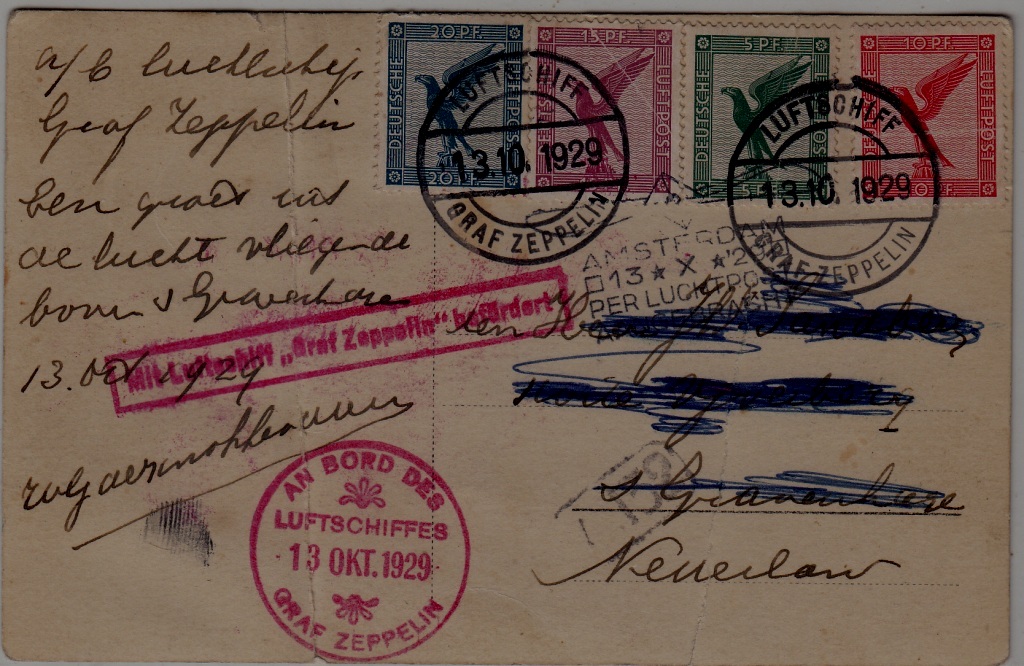 a/b luchtschip
Graf Zeppelin
Een groet uit
de lucht vliegende
boven s Gravenhage
13. Oct 1929
20 PF.
DEUTSCHE
LUFTPOST
20 PF.
15 PF.
LUFTPOST
5 PF.
DEUTSCHE
10 PF.
DEUTSCHE
LUFTPOST
10 PF.
LUFTSCHIFF
13.10.1929
GRAF ZEPPELIN
LUFTSCHIFF
13.10.1929
GRAF ZEPPELIN
AMSTERDAM
13 * X * 29
PER LUCHTPO
Mit Luftschiff „Graf Zeppelin" befördert
AN BORD DES
LUFTSCHIFFES
13 OKT. 1929
GRAF ZEPPELIN
den
s Gravenhage
Nederland